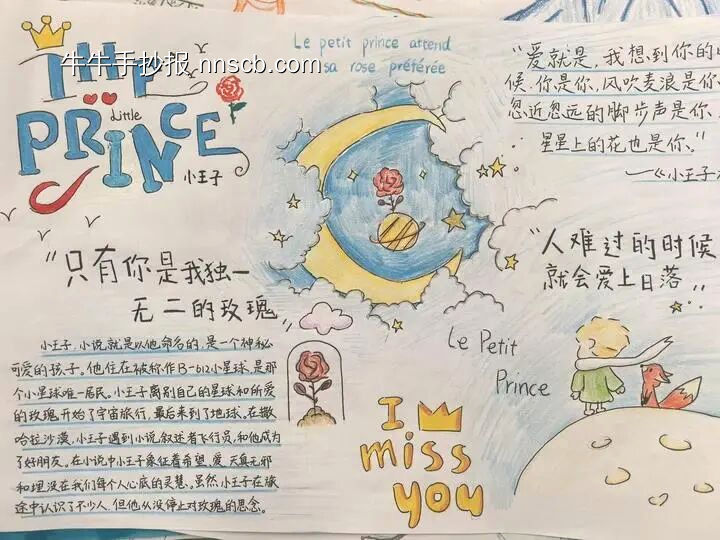 牛牛手抄报.nnscb.com
THE
Little
PRINCE
小王子
Le petit prince attend
sa rose préférée
"爱就是,我想到你的
候.你是你,风吹麦浪是你
忽近忽远的脚步声是你.
星星上的花也是你."
——《小王子
"只有你是我独一
无二的玫瑰"
"人难过的时候
就会爱上日落"
小王子,小说就是以他命名的,是一个神秘
可爱的孩子。他住在被称作B-612小星球,是那
个小星球唯一居民。小王子离别自己的星球和所爱
的玫瑰,开始了宇宙旅行,最后来到了地球。在撒
哈拉沙漠,小王子遇到小说叙述者飞行员,和他成为
了好朋友。在小说中小王子象征着希望、爱、天真无邪
和埋没在我们每个人心底的灵慧。虽然小王子在旅
途中认识了不少人,但他从没停止对玫瑰的思念。
Le Petit
Prince
I
miss
you